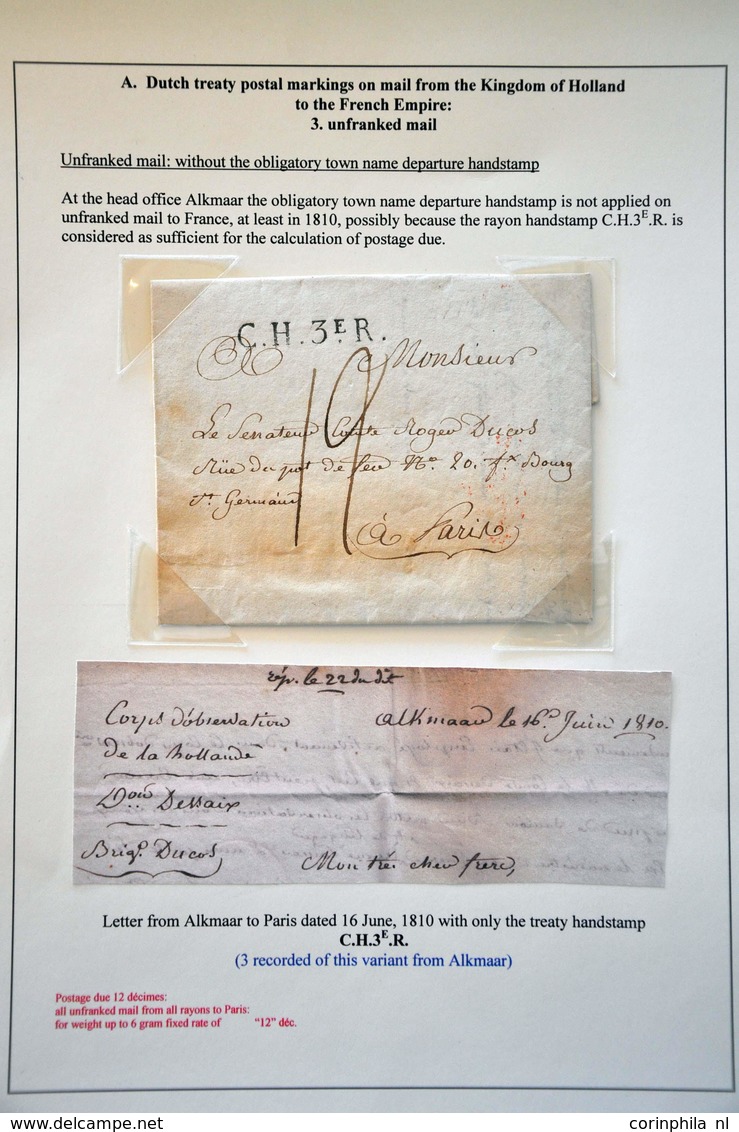 A. Dutch treaty postal markings on mail from the Kingdom of Holland
to the French Empire:
3. unfranked mail
Unfranked mail: without the obligatory town name departure handstamp
At the head office Alkmaar the obligatory town name departure handstamp is not applied on
unfranked mail to France, at least in 1810, possibly because the rayon handstamp C.H.3E.R. is
considered as sufficient for the calculation of postage due.
C.H.3E.R.
Monsieur
12
Le Senateur Comte Roger Ducos
Rüe du pot de feu No. 20. fx Bourg
St Germain
à Paris
rép. le 22 du dit
Corps d'observation
de la hollande
Alkmaar le 16 Juin 1810.
Don Dessaix
Brige. Ducos
Mon très cher frere,
Letter from Alkmaar to Paris dated 16 June, 1810 with only the treaty handstamp
C.H.3E.R.
(3 recorded of this variant from Alkmaar)
Postage due 12 décimes:
all unfranked mail from all rayons to Paris:
for weight up to 6 gram fixed rate of "12" déc.
www.delcampe.net
corinphila nl